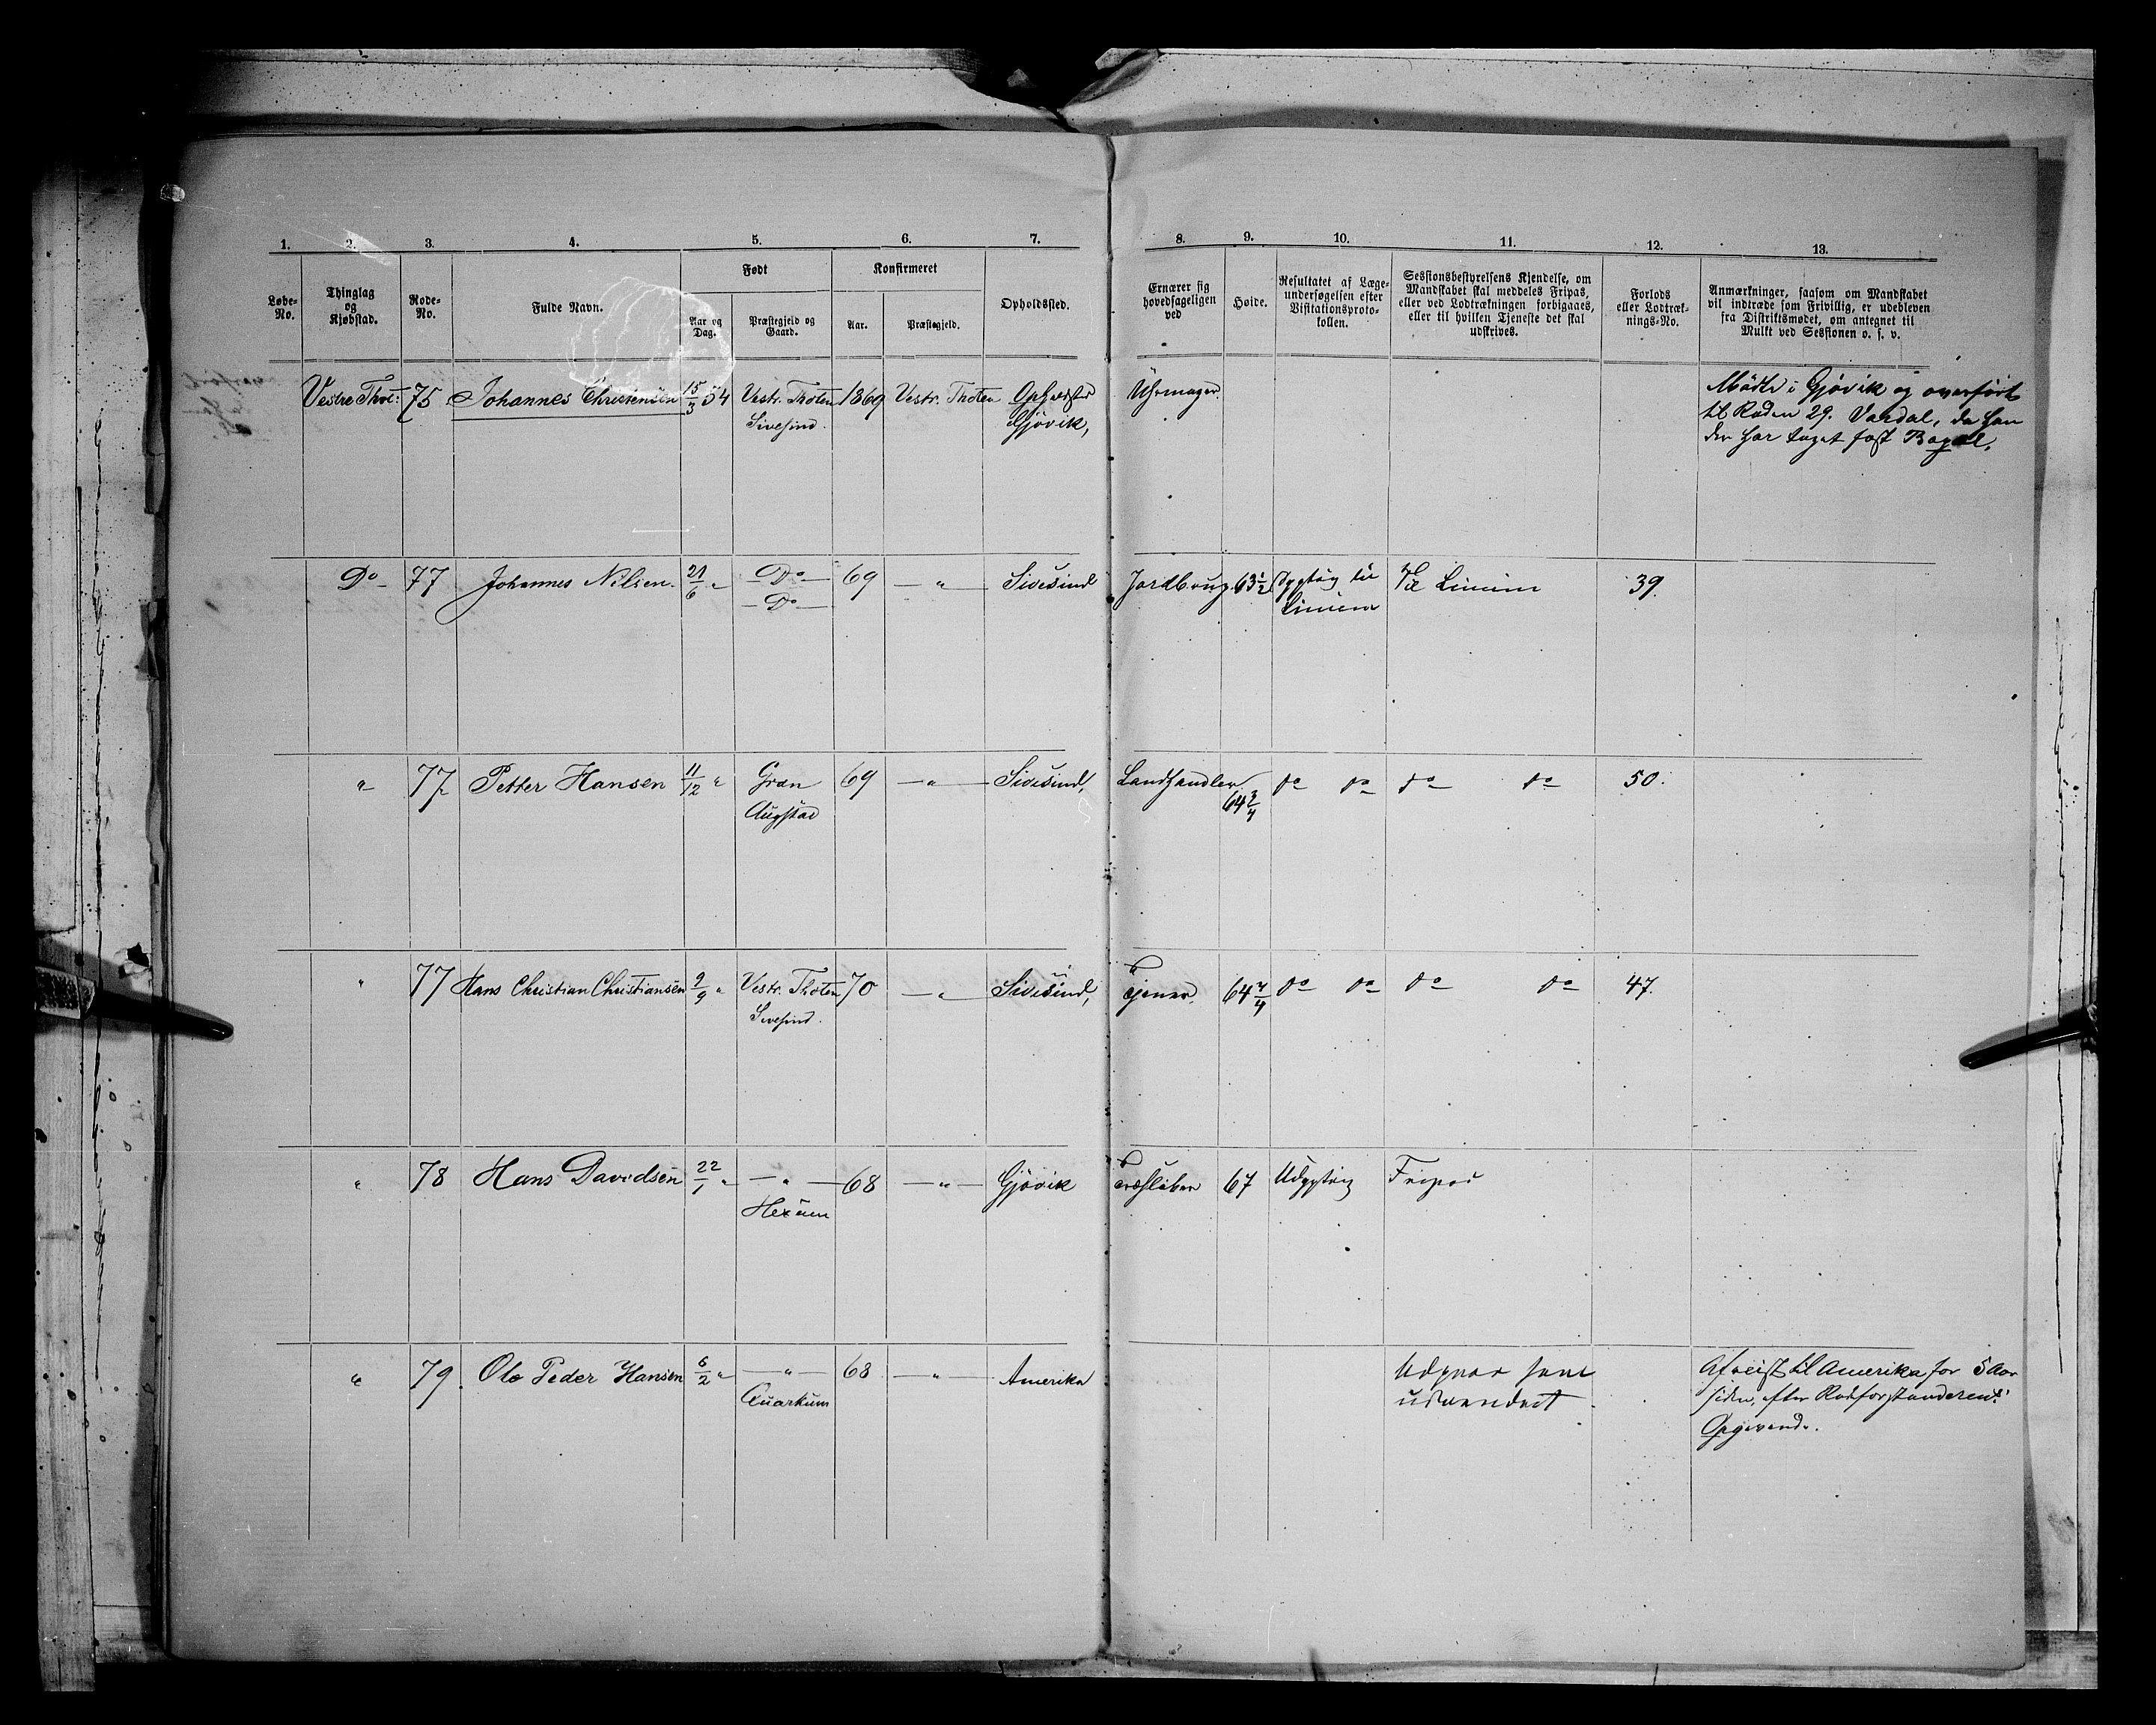 1. 2. 3. 4. 5. 6. 7. 8. 9. 10. 11. 12. 13.
Løbe-No.
Thinglag og Kjøbstad.
Rode-No.
Fulde Navn.
Født
Aar og Dag.
Præstegjeld og Gaard.
Konfirmeret
Aar.
Præstegjeld.
Opholdssted.
Ernærer sig hovedsageligen ved
Høide.
Resultatet af Læge-
undersøgelsen efter
Visitationsproto-
kollen.
Sessionsbestyrelsens Kjendelse, om
Mandskabet skal meddeles Fripas,
eller ved Lodtrækningen forbigaaes,
eller til hvilken Tjeneste det skal
udskrives.
Forlods
eller Lodtræk-
nings-No.
Anmærkninger, saasom om Mandskabet
vil indtræde som Frivillig, er udebleven
fra Distriktsmødet, om antegnet til
Mulkt ved Sessionen o. s. v.
Vestre Thot: 75 Johannes Christensen 15/3 54 Vestr. Thoten 1869 Vestr. Thoten Uhrmager. Mödte i Gjövik og overfört
Sivesind. Gjövik, til Roden 29. Vardal, da han
der har taget fast Bopæl.
Do 77 Johannes Nilsen 21/6 " Do 69 " Sivesind Jordbrug. 63 1/2 Dygtig til Linien 39.
Do Linien
" 77 Petter Hansen 11/12 " Gran 69 " Sivesind, Landhandler do do do do 50.
Augstad 64 3/4
" 77 Hans Christian Christiansen 9/9 " Vestr. Thoten 70 " Sivesind, Tjener. 64 do do do do 47.
Sivesind.
" 78 Hans Davidsen 22/1 " " 68 " Gjövik 67 Udygtig Fripas
Hexum
" 79 Ole Peder Hansen 6/2 " " 68 " Amerika Udgaar som Afreist til Amerika for 5 Aar
Quarkum udvandret siden, efter Rodeforstanderens
Opgivende.